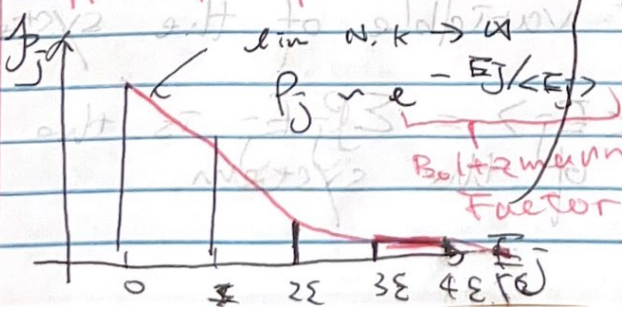 Pj
lim N,k → ∞
Pj ~ e - Ej/<Ej>
Boltzmann
Factor
0 2ε 3ε 4ε Ej